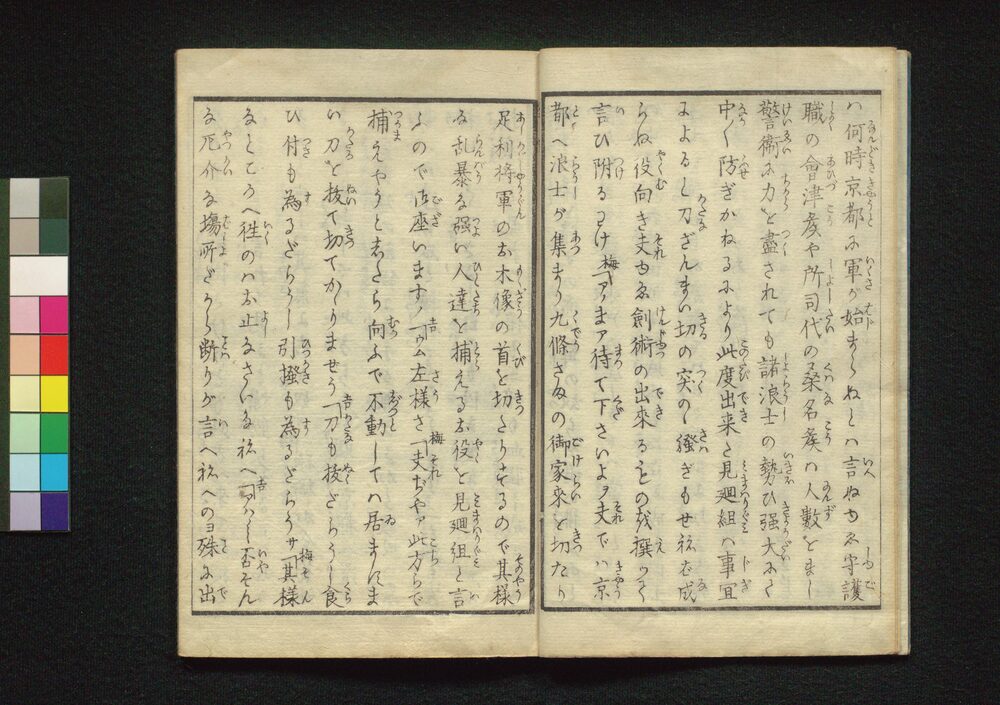 ハ何時京都に軍が始まらねしとハ言ぬゆゑ守護
職の會津矦や所司代の桑名矦ハ人數をまし
警衛に力を盡されても諸浪士の勢ひ強大にて
中〻防ぎかねるにより此度出来た見廻組ハ事宜
によるし刀ざんまい切つ突つの騒ぎもせねバ成
らぬ役向き夫ゆゑ劍術の出來るものを撰つて
言ひ附るわけ「アヽマア待て下さいよヲ夫でハ京
都へ浪士が集まり九條さまの御家來を切たり
足利將軍のお木像の首を切たりするので其様
な乱暴な強い人達を捕えるお役を見廻組と言
ふので御座いますか「ウム左様さ「夫ぢやア此方らで
捕えやうとしたら向ふで不動してハ居ますま
い刀を抜て切てかゝりませう「刀も抜だらうし食
ひ付も為るだらうし引掻も為るだらうサ「其様
なところへ徃のハお止なさいなねへ「アハヽし否そん
な厄介な塲所だから断りが言へねへのヨ殊に出